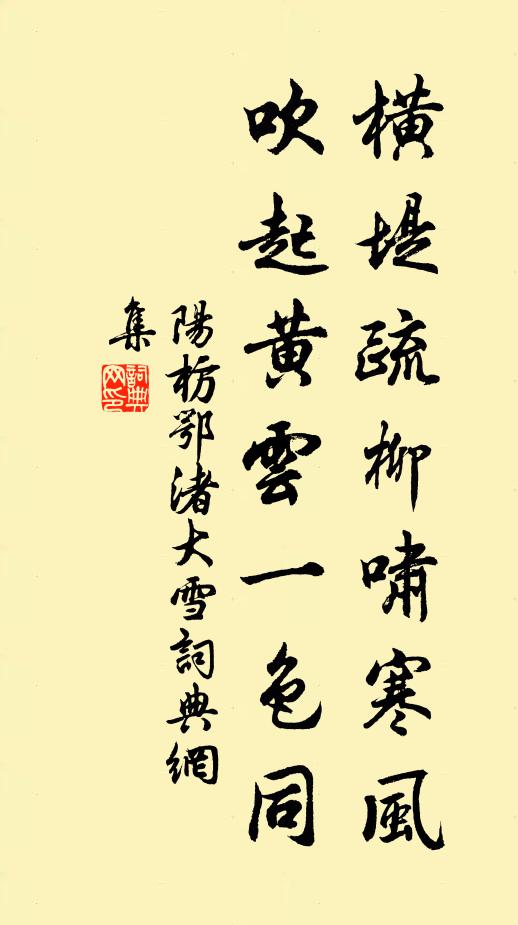 橫堤疏柳嘯寒風
吹起黃雲一色同
陽枋鄂渚大雪詞典網
集
詞典
网印